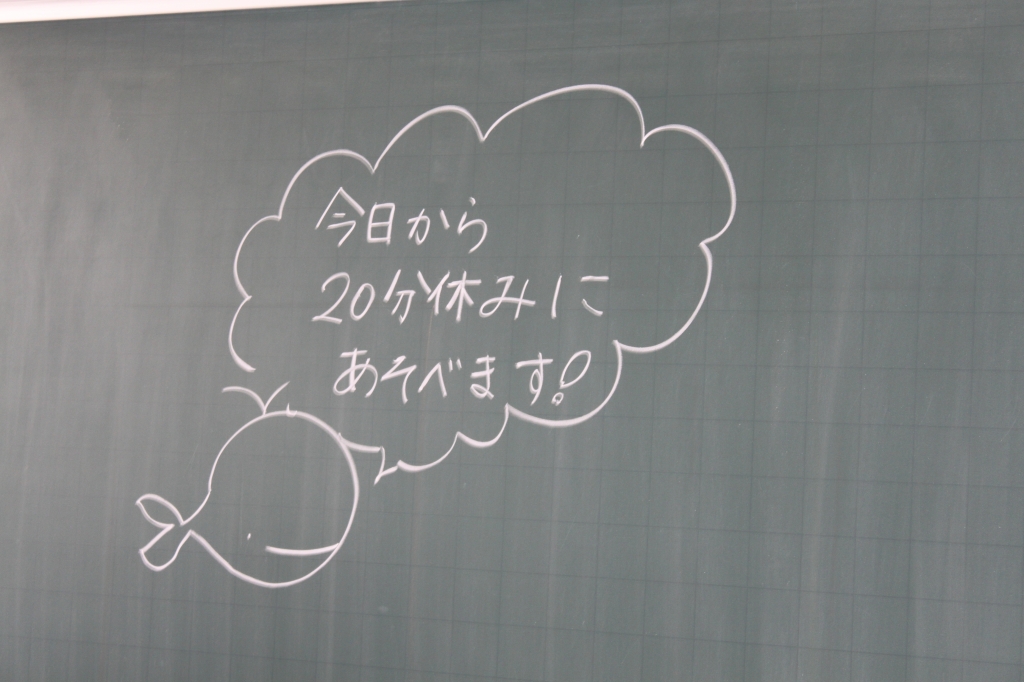 今日から
20分休みに
あそべます!